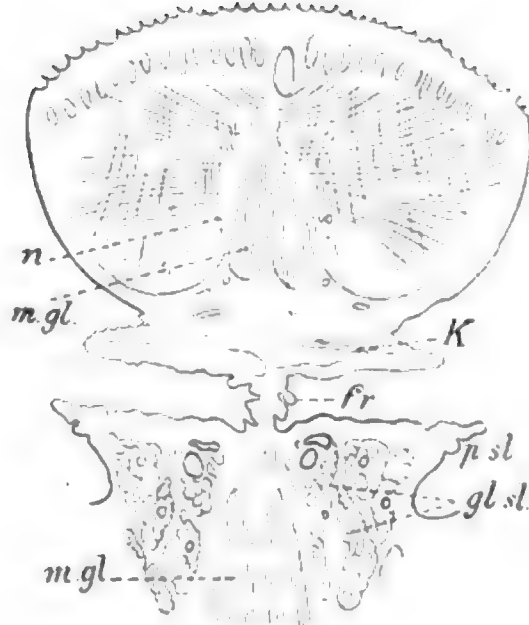 n
m.gl.
K
fr
p sl
gl.sl.
m.gl